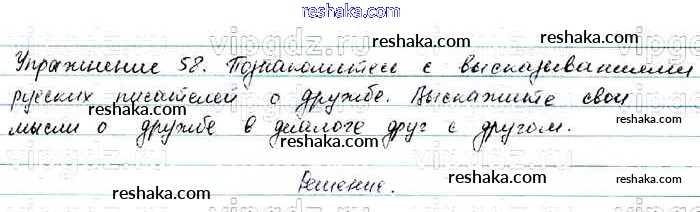 reshaka.com
Упражнение 58. Познакомитесь с высказываниями
русских писателей о дружбе. Выскажите свои
мысли о дружбе в диалоге друг с другом.
Решение.
reshaka.com
reshaka.com
reshaka.com
reshaka.com
reshaka.com
reshaka.com
reshaka.com
reshaka.com
reshaka.com
vipgdz.ru
vipgdz.ru
vipgdz.ru